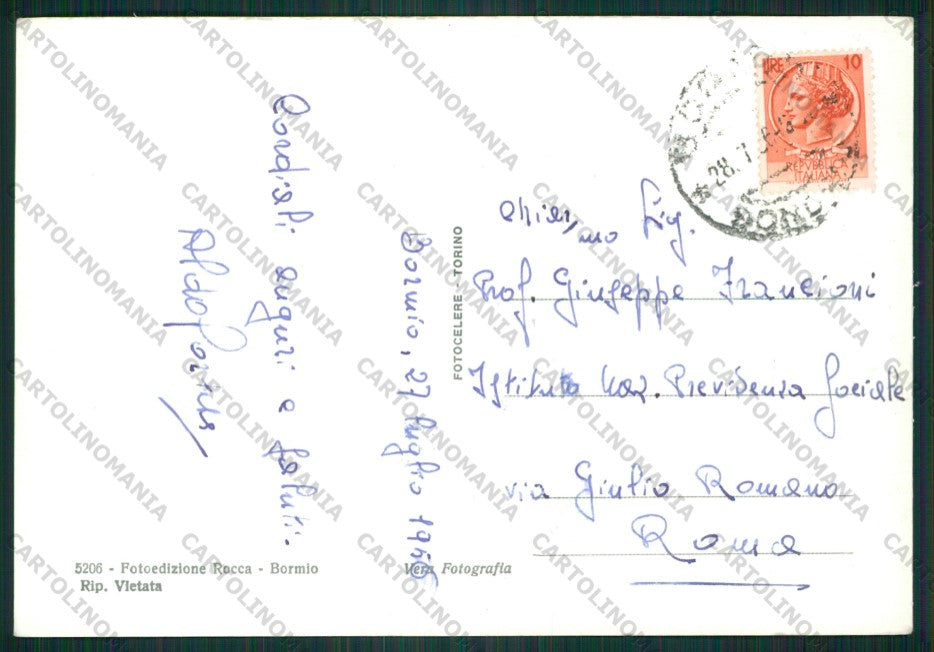 Cordiali auguri e saluti.
Bormio, 27 luglio 1956
FOTOCELERE - TORINO
LIRE 10
REPUBBLICA
ITALIANA
28. 7
Chiar.mo Sig.
Prof. Giuseppe Francioni
Istituto Naz. Previdenza Sociale
via Giulio Romano
Roma
5206 - Fotoedizione Rocca - Bormio
Rip. Vietata
Vera Fotografia
CARTOLINOMANIA